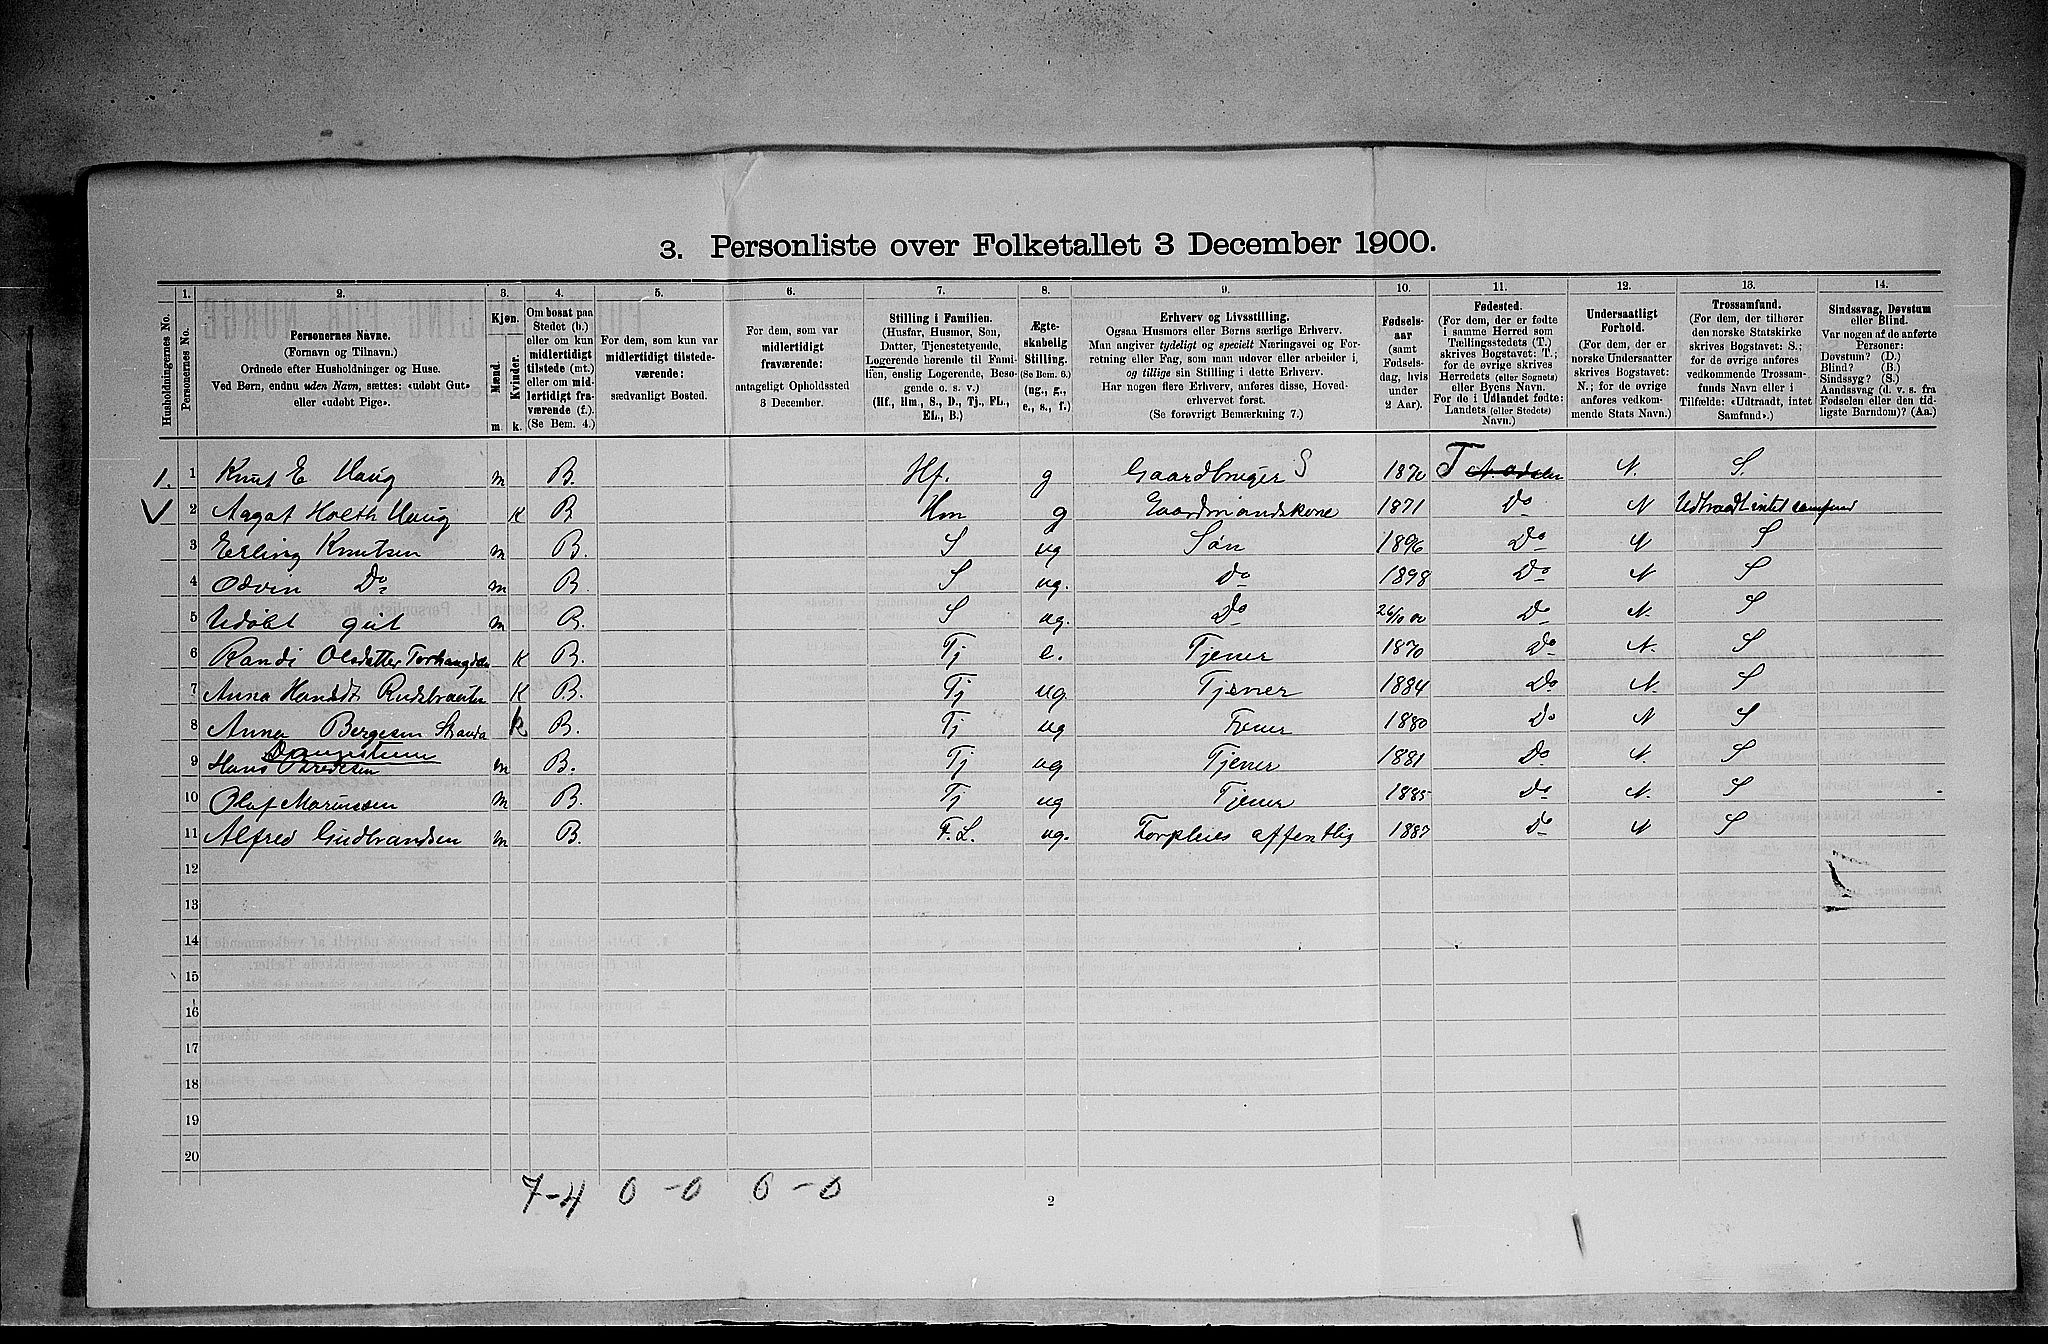 3. Personliste over Folketallet 3 December 1900.
1. 2. 3. 4. 5. 6. 7. 8. 9. 10. 11. 12. 13. 14.
Husholdningernes No.
Personernes No.
Personernes Navne.
(Fornavn og Tilnavn.)
Ordnede efter Husholdninger og Huse.
Ved Børn, endnu uden Navn, sættes: «udøbt Gut»
eller «udøbt Pige».
Kjøn.
Mænd.
Kvinder.
m. k.
Om bosat paa
Stedet (b.)
eller om kun
midlertidigt
tilstede (mt.)
eller om mid-
lertidigt fra-
værende (f.).
(Se Bem. 4.)
For dem, som kun var
midlertidigt tilstede-
værende:
sædvanligt Bosted.
For dem, som var
midlertidigt
fraværende:
antageligt Opholdssted
3 December.
Stilling i Familien.
(Husfar, Husmor, Søn,
Datter, Tjenestetyende,
Logerende hørende til Fami-
lien, enslig Logerende, Besø-
gende o. s. v.)
(Hf., Hm., S., D., Tj., FL.,
EL., B.)
Ægte-
skabelig
Stilling.
(Se Bem. 6.)
(ug., g.,
e., s., f.)
Erhverv og Livsstilling.
Ogsaa Husmors eller Børns særlige Erhverv.
Man angiver tydeligt og specielt Næringsvei og For-
retning eller Fag, som man udøver eller arbeider i,
og tillige sin Stilling i dette Erhverv.
Har nogen flere Erhverv, anføres disse, Hoved-
erhvervet først.
(Se forøvrigt Bemærkning 7.)
Fødsels-
aar
(samt
Fødsels-
dag, hvis
under
2 Aar).
Fødested.
(For dem, der er fødte
i samme Herred som
Tællingsstedets (T.)
skrives Bogstavet: T.;
for de øvrige skrives
Herredets (eller Sognets)
eller Byens Navn.
For de i Udlandet fødte:
Landets (eller Stedets)
Navn.)
Undersaatligt
Forhold.
(For dem, der er
norske Undersaatter
skrives Bogstavet:
N.; for de øvrige
anføres vedkom-
mende Stats Navn.)
Trossamfund.
(For dem, der tilhører
den norske Statskirke
skrives Bogstavet: S.;
for de øvrige anføres
vedkommende Trossam-
funds Navn eller i
Tilfælde: «Udtraadt, intet
Samfund».)
Sindssvag, Døvstum
eller Blind.
Var nogen af de anførte
Personer:
Døvstum? (D.)
Blind? (B.)
Sindssyg? (S.)
Aandssvag (d. v. s. fra
Fødselen eller den tid-
ligste Barndom)? (Aa.)
1. 1 Knut E Haug m B. Hf. g Gaardbruger S 1870 T N. S.
2 Aagot Holth Haug K B Hm g Gaardmandskone 1871 Do N Udtraadt intet samfund
3 Erling Knutsen m B. S ug Søn 1896 Do N S
4 Odvin Do m B. S ug. Do 1898 Do N S
5 Udøbt gut m B. S ug. Do 26/10 00 Do N. S
6 Randi Olsdatter K B. Tj e. Tjener 1870 Do N. S
7 Anna Hansdt Rudsbraaten K B. Tj ug. Tjener 1884 Do N. S
8 Anna Bergesen Stranda k B. Tj ug Tjener 1880 Do N S
9 Hans m B. Tj ug Tjener 1881 Do N. S
10 Olaf Mariussen m B. Tj ug Tjener 1885 Do N. S
11 Alfred Gudbrandsen m B. F. L. ug. Forpleies offentlig 1887 Do N S
12
13
14
15
16
17
18
19
20
7-4 0-0 0-0
2